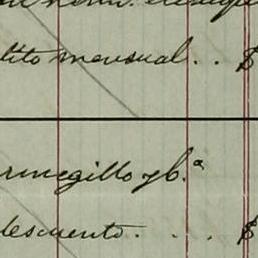 dito mensual. . $
rmegillo y b.ª
descuento. . . . $